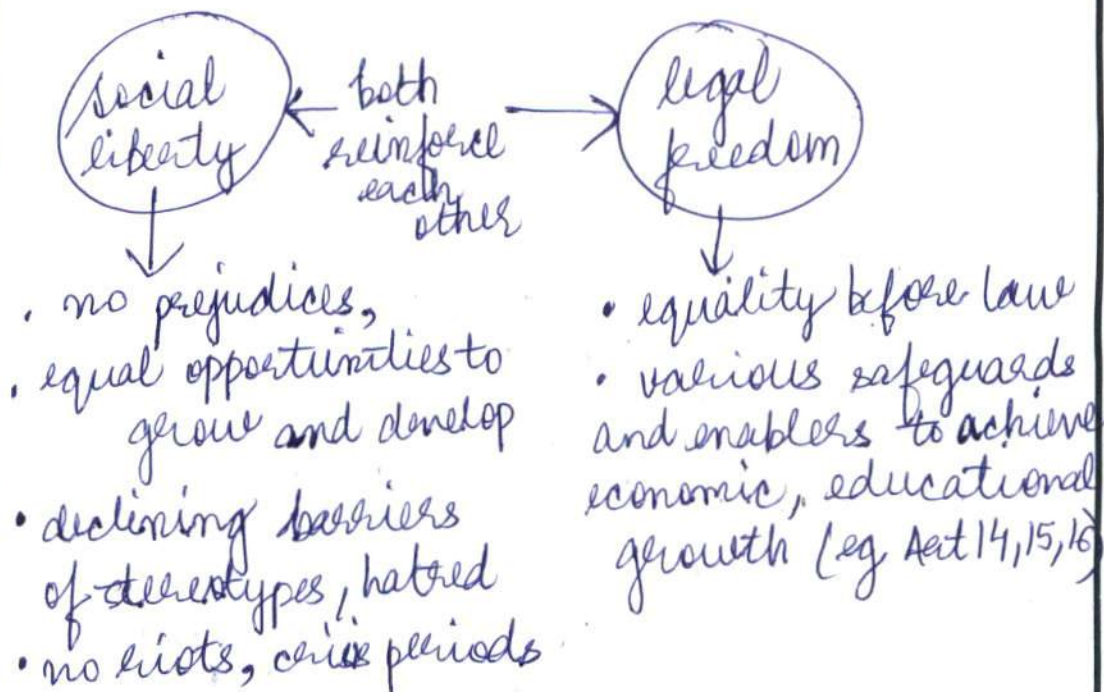 social
liberty
both
reinforce
each
other
legal
freedom
. no prejudices,
. equal opportunities to
grow and develop
• declining barriers
of stereotypes, hatred
• no riots, crisis periods
• equality before law
• various safeguards
and enablers to achieve
economic, educational
growth (eg Art 14,15,16)